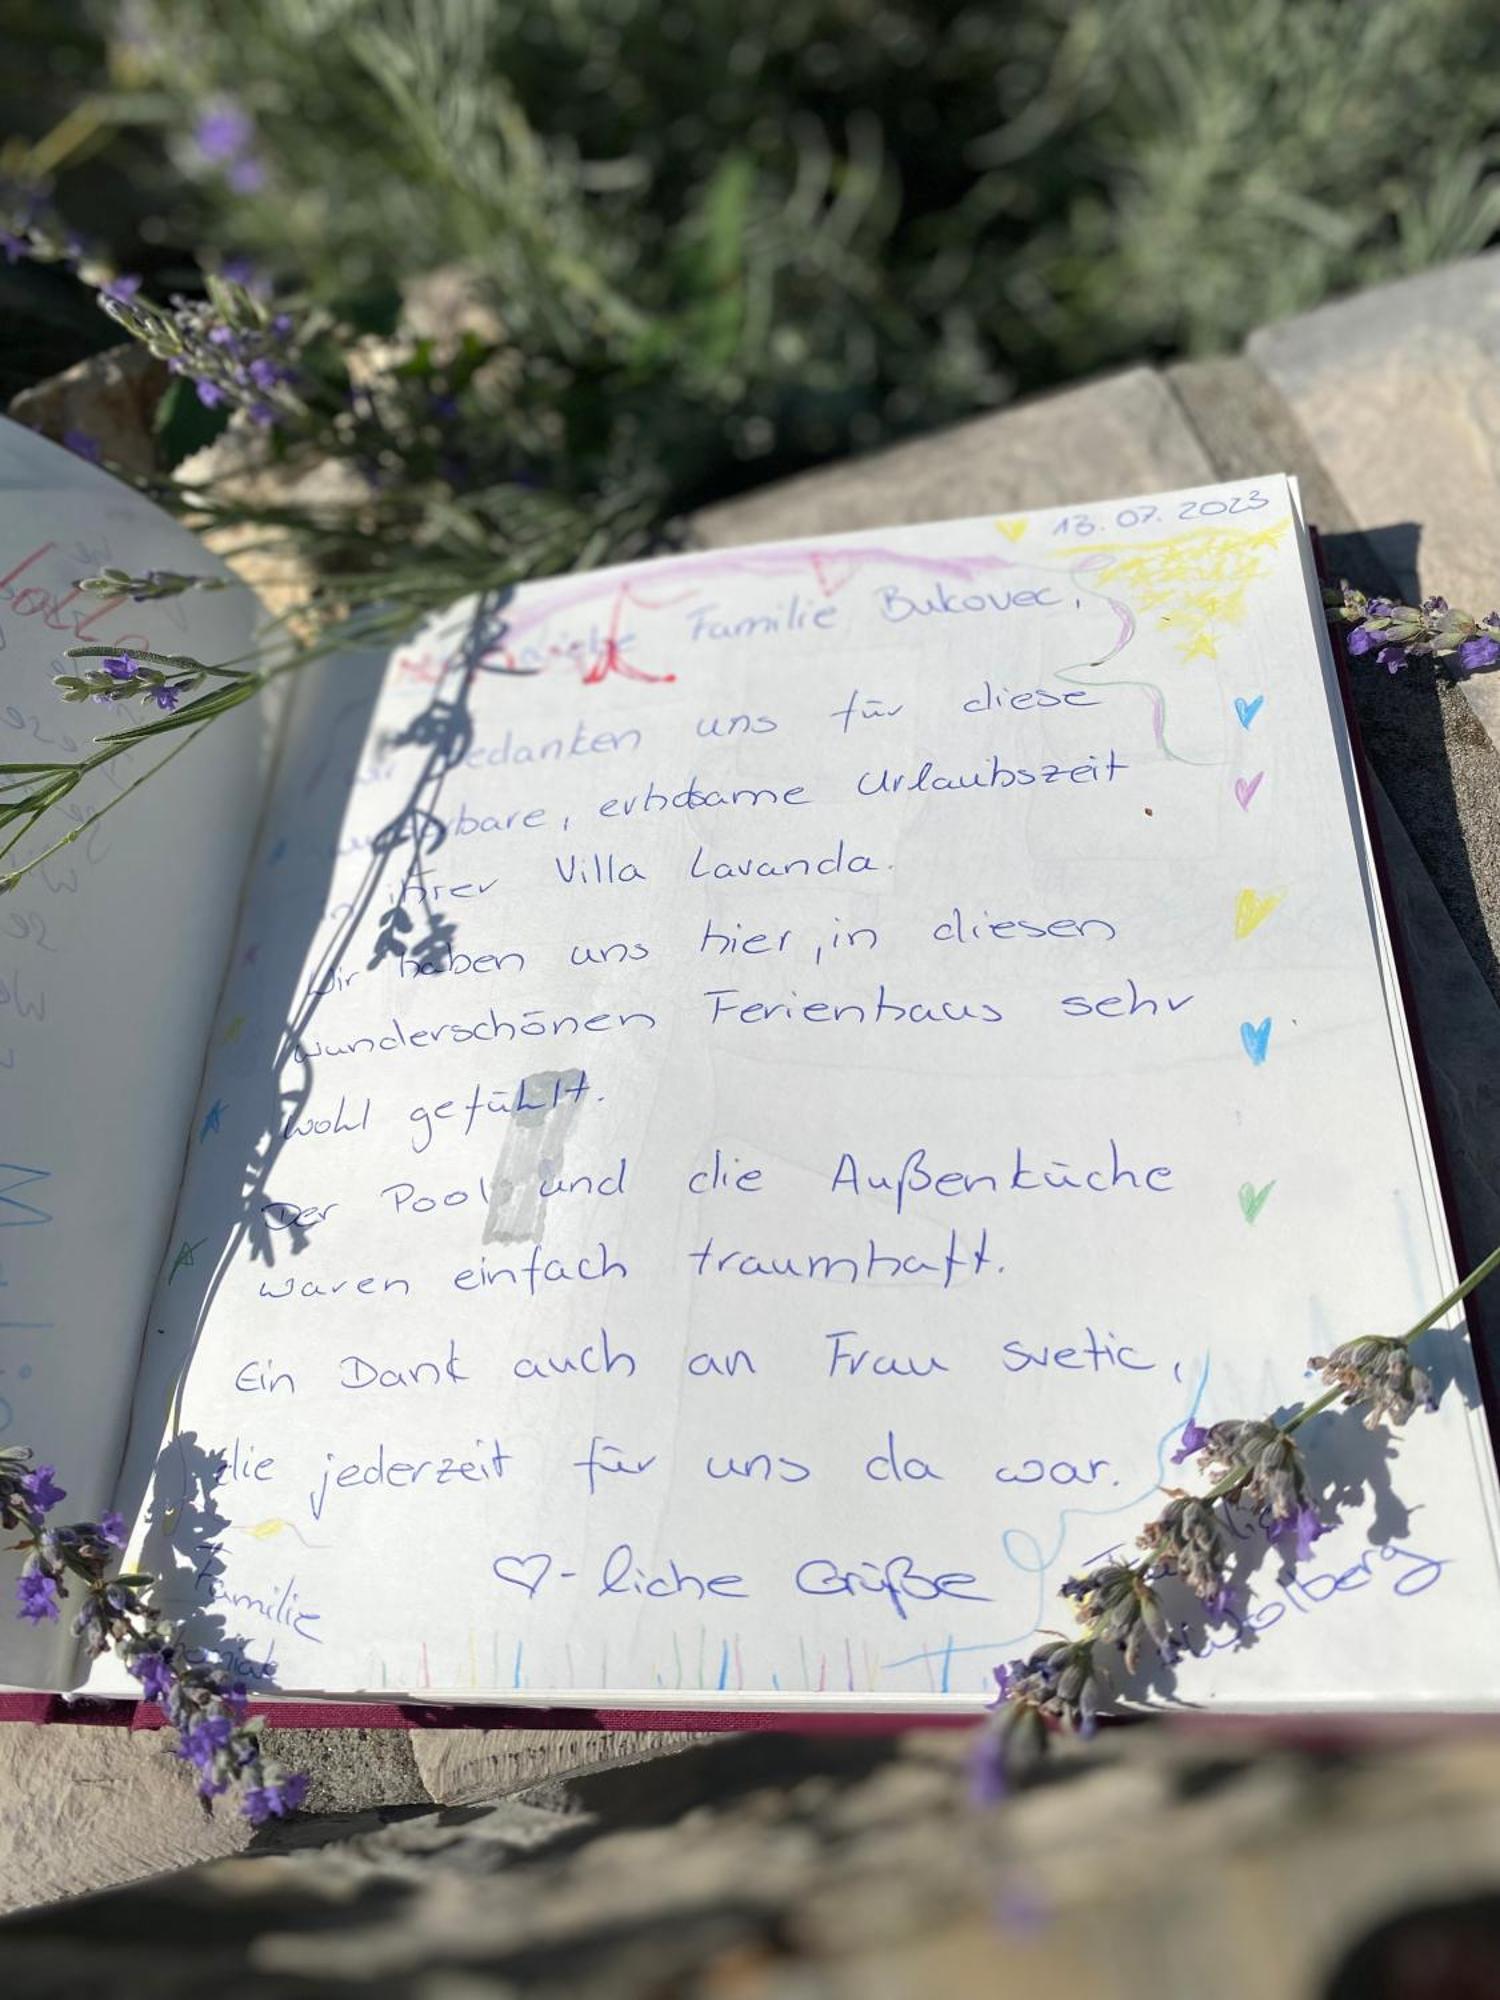 13.07.2023
Liebe Familie Bukovec,
Wir bedanken uns für diese
wunderbare, erholsame Urlaubszeit
in ihrer Villa Lavanda.
Wir haben uns hier, in diesen
wunderschönen Ferienhaus sehr
wohl gefühlt.
Der Pool und die Außenküche
waren einfach traumhaft.
Ein Dank auch an Frau Svetic,
die jederzeit für uns da war.
♡-liche Grüße
Familie